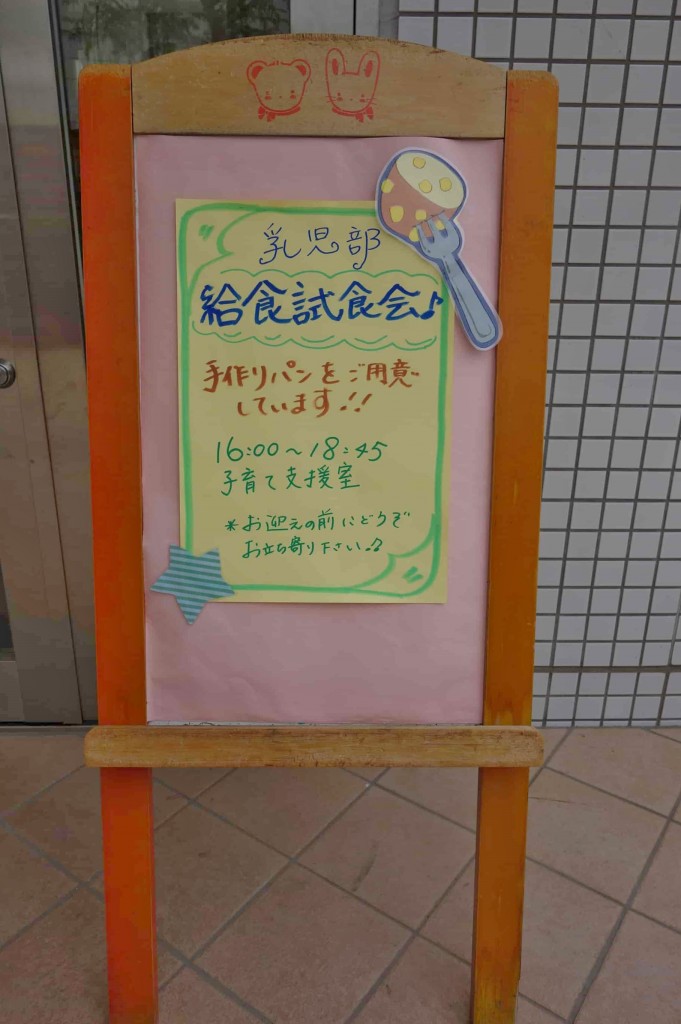 乳児部
給食試食会♪
手作りパンをご用意
しています!!
16:00～18:45
子育て支援室
*お迎えの前にどうぞ
お立ち寄り下さい♪